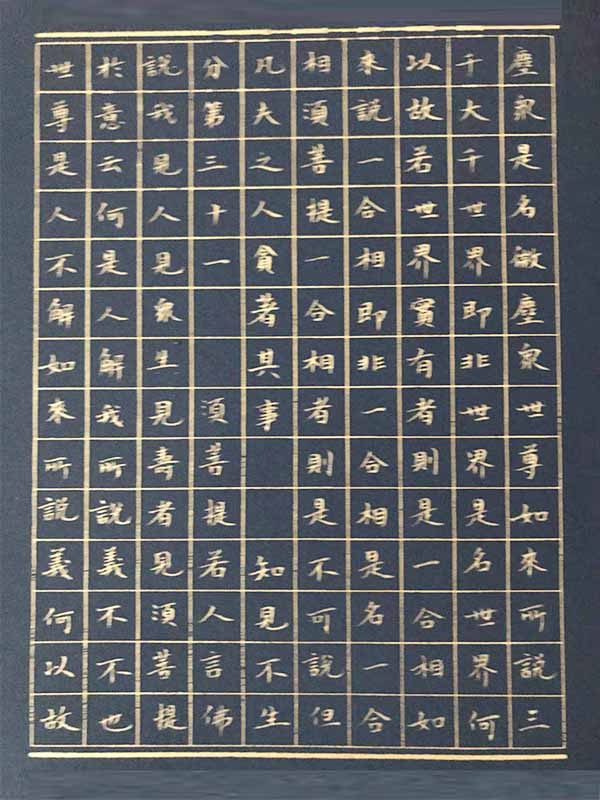 塵衆是名微塵衆世尊如來所說三
千大千世界即非世界是名世界何
以故若世界實有者則是一合相如
來說一合相即非一合相是名一合
相須菩提一合相者則是不可說但
凡夫之人貪著其事　　知見不生
分第三十一　　須菩提若人言佛
說我見人見衆生見壽者見須菩提
於意云何是人解我所說義不不也
世尊是人不解如來所說義何以故